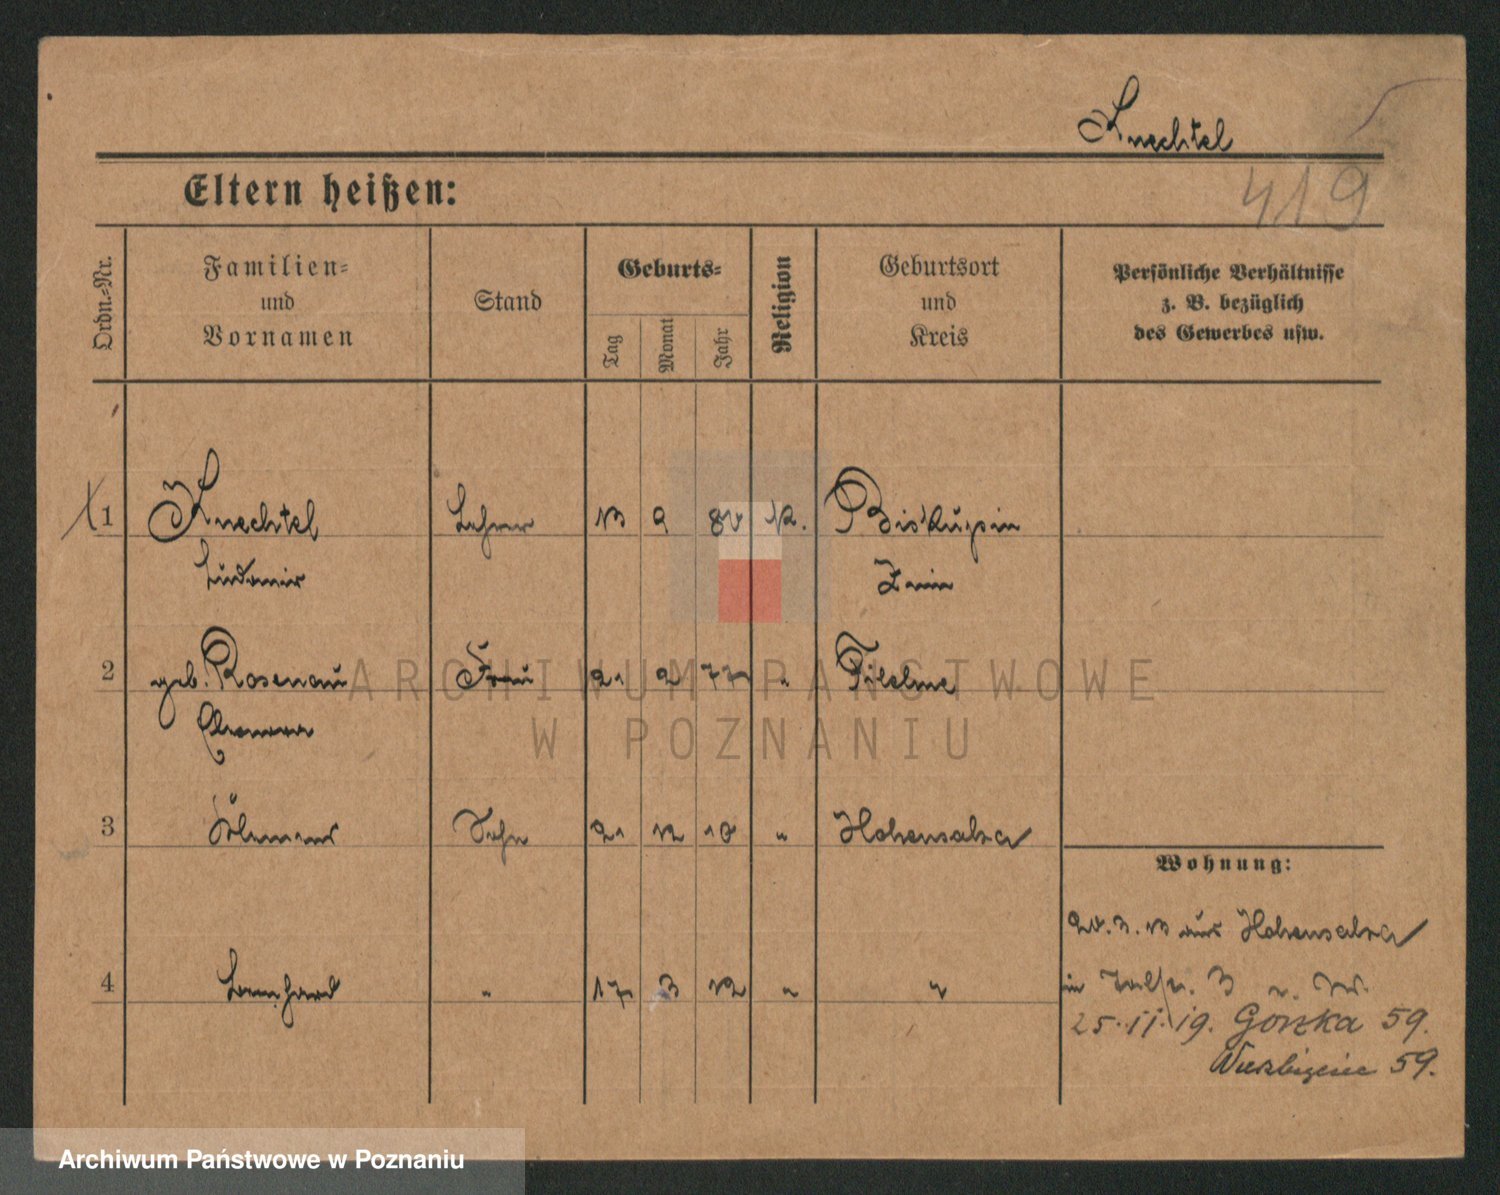 Knechtel
419
Eltern heißen:
Ordn.-Nr.
Familien-
und
Vornamen
Stand
Geburts-
Tag
Monat
Jahr
Religion
Geburtsort
und
Kreis
Persönliche Verhältnisse
z. B. bezüglich
des Gewerbes usw.
1 Knechtel Lehrer 13 9 k. Biskupin
Ludomir Znin
2 geb. Rosenau Frau 21 2 77 "
3 Klemens Sohn 21 12 10 " Hohensalza
Wohnung:
13 aus Hohensalza
4 Bernhard " 17 3 12 " "
in 3
25.11.19. Gorzka 59.
59.
ARCHIWUM PAŃSTWOWE
W POZNANIU
Archiwum Państwowe w Poznaniu